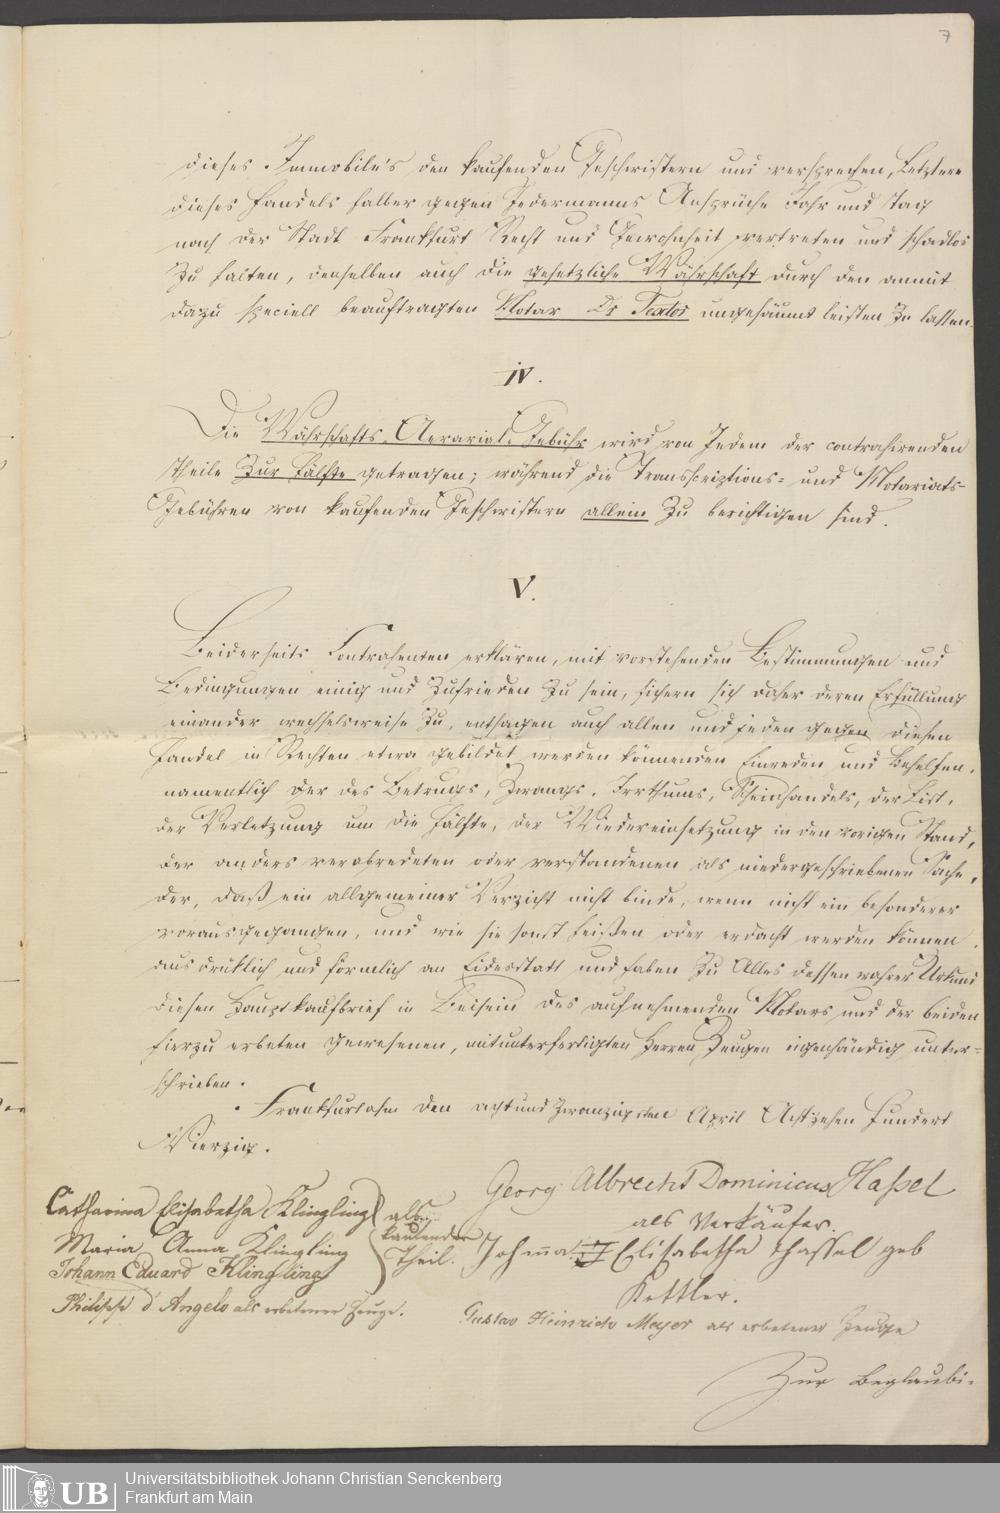 7
dieses Immobile's den kaufenden Geschwistern und versprechen, Letztere
dieses Handels halber gegen Jedermanns Ansprüche Jahr und Tag
nach der Stadt Frankfurt Recht und Gewohnheit zu vertreten und schadlos
zu halten, denselben auch die gesetzliche Währschaft durch den anmit
dazu speciell beauftragten Notar Dr Textor ungesäumt leisten zu lassen.
IV.
Die Währschafts-Aerarial-Gebühr wird von Jedem der contrahirenden
Theile zur Hälfte getragen; während die Transscriptions- und Notariats-
Gebühren von kaufenden Geschwistern allein zu berichtigen sind.
V.
Beiderseits Contrahenten erklären, mit vorstehenden Bestimmungen und
Bedingungen einig und zufrieden zu sein, sichern sich daher deren Erfüllung
einander wechselsweise zu, entsagen auch allen und jeden gegen diesen
Handel in Rechten etwa gebildet werden könnenden Einreden und Behelfen,
namentlich der des Betrugs, Zwangs, Irrthums, Scheinhandels, der List,
der Verletzung um die Hälfte, der Wiedereinsetzung in den vorigen Stand,
der anders verabredeten oder verstandenen als niedergeschriebenen Sache,
der, daß ein allgemeiner Verzicht nicht binde, wenn nicht ein besonderer
vorausgegangen, und wie sie sonst heißen oder erdacht werden können,
ausdrüklich und förmlich an Eidesstatt und haben zu Alles dessen wahrer Urkund
diesen Hauptkaufbrief in Beisein des aufnehmenden Notars und der beiden
hierzu erbeten gewesenen, mitunterfertigten Herren Zeugen eigenhändig unter-
schrieben.
Frankfurt a/m den achtundzwanzigsten April Achtzehen hundert
Vierzig.
Georg Albrecht Dominicus Haßel
als Verkäufer.
Catharina Elisabetha Klingling
Maria Anna Klingling
Johann Eduard Klingling
als kaufender Theil.
Johanna Elisabetha Hassel geb
Kettler.
Philipp d'Angelo als erbetener Zeuge.
Gustav Heinrich Meyer als erbetener Zeuge
Zur Beglaubi-
UB
Universitätsbibliothek Johann Christian Senckenberg
Frankfurt am Main